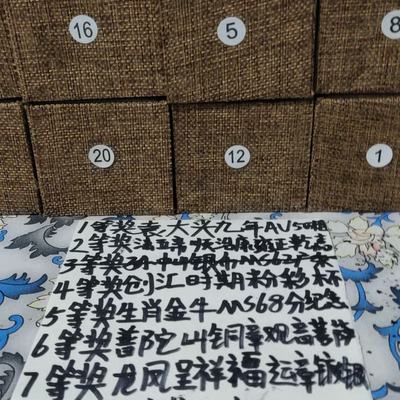 16 5 8
20 12 1
1等奖袁大头九年AU50
2等奖清五帝
3等奖孙中山银币MS62
4等奖创汇时期粉彩杯
5等奖生肖金牛MS68分纪念
6等奖普陀山铜章观音菩萨
7等奖龙凤呈祥福运章镀银